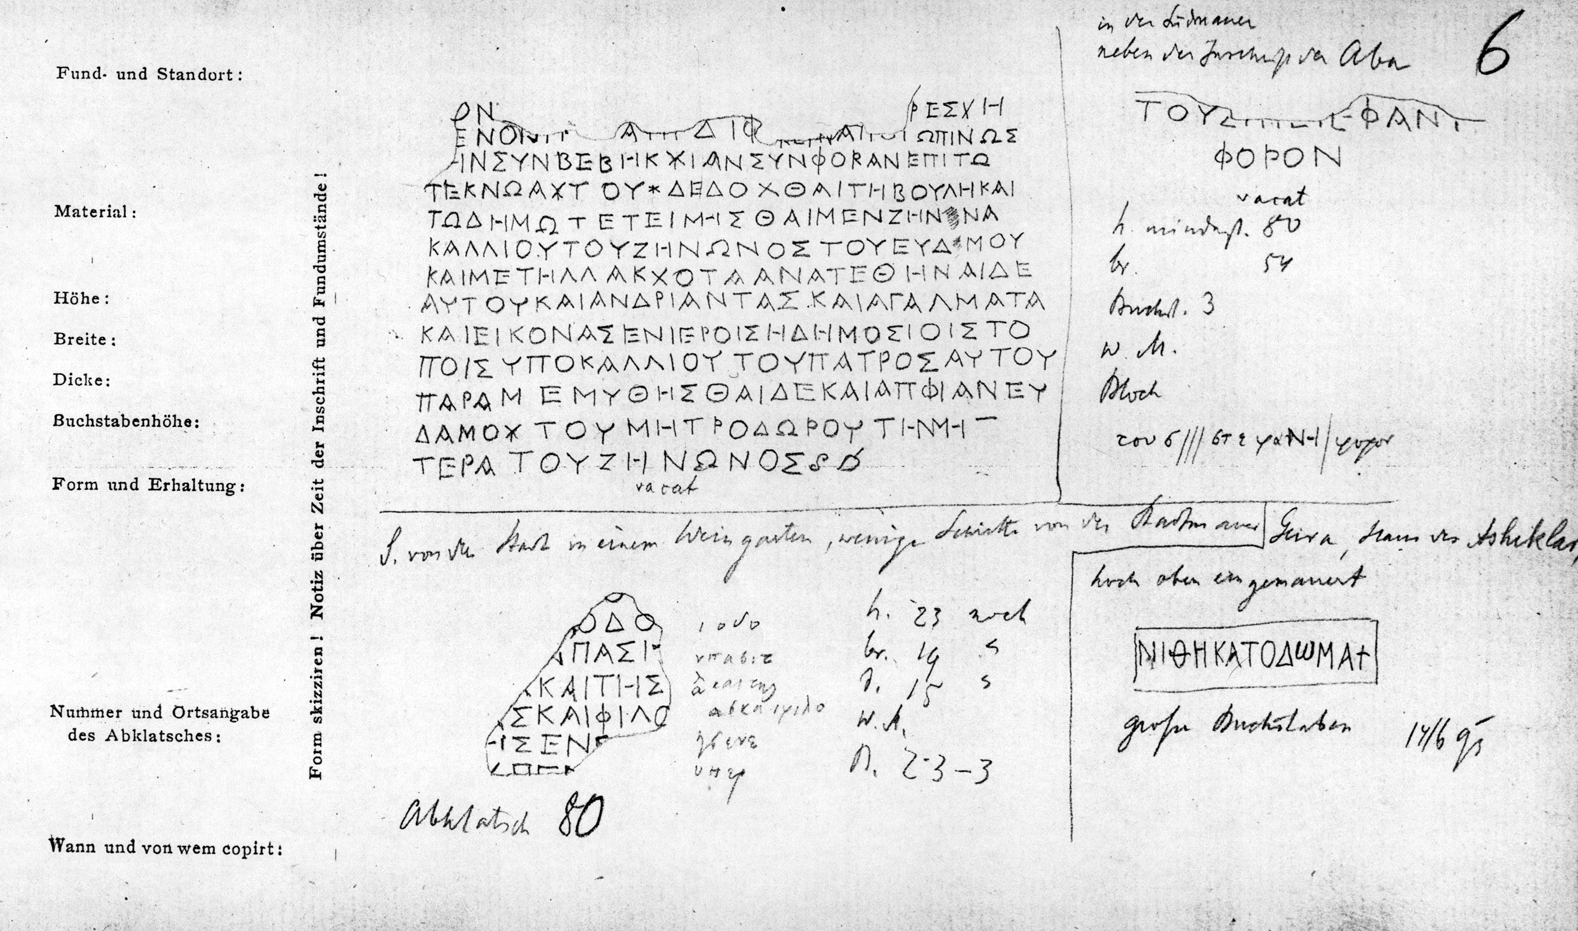 6
Fund- und Standort:
Material:
Höhe:
Breite:
Dicke:
Buchstabenhöhe:
Form und Erhaltung:
Nummer und Ortsangabe
des Abklatsches:
Wann und von wem copirt:
Form skizziren! Notiz über Zeit der Inschrift und Fundumstände!
ΟΝ ΡΕΣΧΗ
ΕΝΟΝ ΩΠΙΝΩΣ
ΗΝΣΥΝΒΕΒΗΚΧΙΑΝΣΥΝΦΟΡΑΝΕΠΙΤΩ
ΤΕΚΝΩΑΧΤΟΥ*ΔΕΔΟΧΘΑΙΤΗΒΟΥΛΗΚΑΙ
ΤΩΔΗΜΩΤΕΤΕΙΜΗΣΘΑΙΜΕΝΖΗΝ ΝΑ
ΚΑΛΛΙΟΥΤΟΥΖΗΝΩΝΟΣΤΟΥΕΥΔ ΜΟΥ
ΚΑΙΜΕΤΗΛΛΑΚΧΟΤΑΑΝΑΤΕΘΗΝΑΙΔΕ
ΑΥΤΟΥΚΑΙΑΝΔΡΙΑΝΤΑΣΚΑΙΑΓΑΛΜΑΤΑ
ΚΑΙΕΙΚΟΝΑΣΕΝΙΕΡΟΙΣΗΔΗΜΟΣΙΟΙΣΤΟ
ΠΟΙΣΥΠΟΚΑΛΛΙΟΥΤΟΥΠΑΤΡΟΣΑΥΤΟΥ
ΠΑΡΑΜΕΜΥΘΗΣΘΑΙΔΕΚΑΙΑΠΦΙΑΝΕΥ
ΔΑΜΟΧΤΟΥΜΗΤΡΟΔΩΡΟΥΤΗΝΜΗ
ΤΕΡΑΤΟΥΖΗΝΩΝΟΣ
vacat
in der Südmauer
neben der Inschrift der Aba
ΤΟΥΣ ΦΑΝΙ
ΦΟΡΟΝ
vacat
h. mindest. 80
br. 54
Buchst. 3
w. M.
Bloch
του σ///στεφαΝΗ/φορον
S. von der Stadt in einem Weingarten, wenige Schritte von der Stadtmauer
ΟΔΟ
ΠΑΣΙ
ΚΑΙΤΗΣ
ΣΚΑΙΦΙΛΟ
ΗΣΕΝ
ιοδο
υπασιτ
ασκαιφιλο
ησενε
υπερ
h. 23 noch
br. 19 "
d. 15 "
w. M.
B. 2·3–3
Abklatsch 80
Geira, Haus des Ashiklar,
hoch oben eingemauert
ΝΙΘΗΚΑΤΟΔΩΜΑ+
große Buchstaben
14/6 93